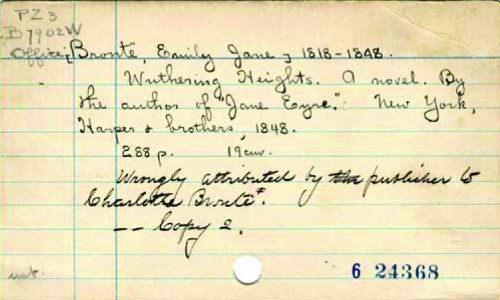 PZ3
.B7902W
Office
Brontë, Emily Jane, 1818-1848.
Wuthering Heights. A novel. By
the author of "Jane Eyre." New York,
Harper & brothers, 1848.
288 p. 19 cm.
Wrongly attributed by the publisher to
Charlotte Brontë.
-- Copy 2.
6 24368